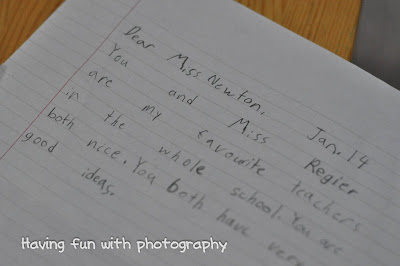 Jan. 14
Dear Miss Newton,
You and Miss Regier
are my favourite teachers
in the whole school. You are
both nice. You both have very
good ideas.
Having fun with photography